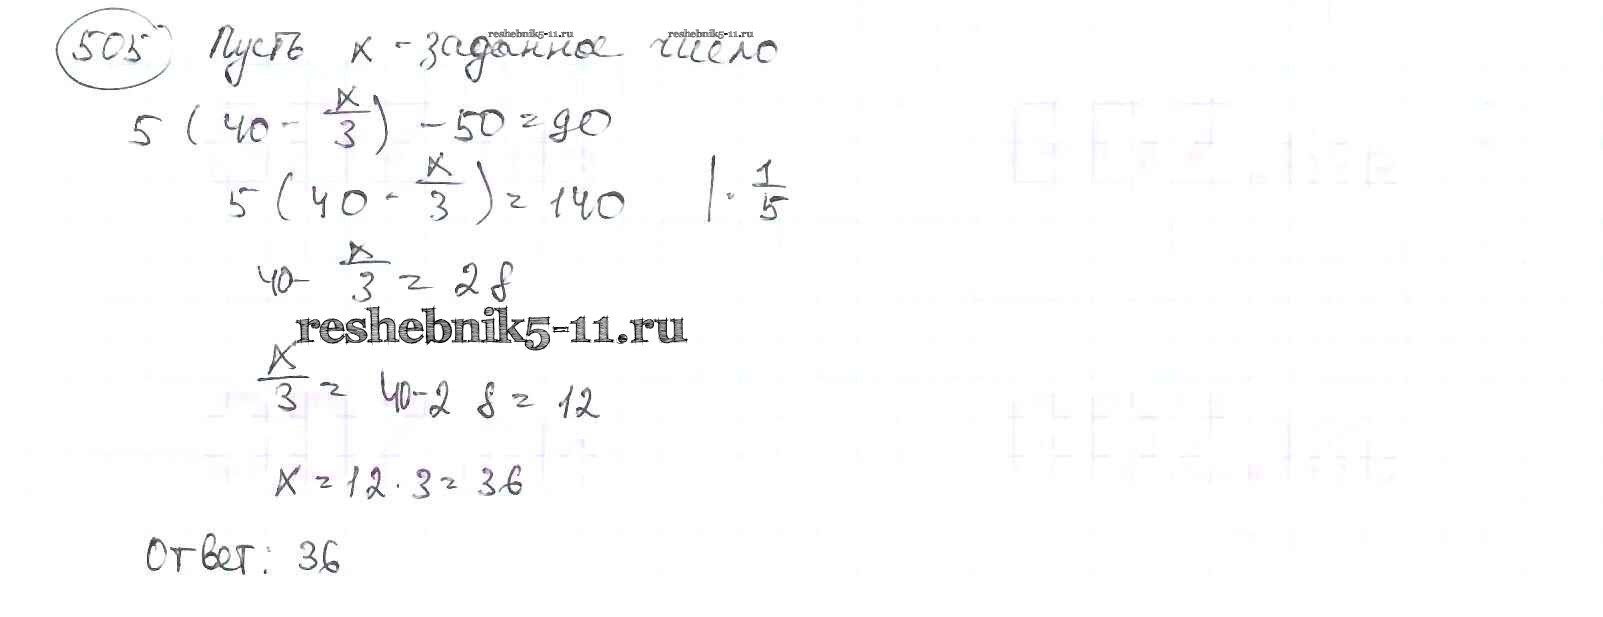 505 Пусть x - заданное число
reshebnik5-11.ru reshebnik5-11.ru
5 (40 - x/3) - 50 = 90
5 (40 - x/3) = 140 | · 1/5
40 - x/3 = 28
reshebnik5-11.ru
x/3 = 40 - 28 = 12
x = 12 · 3 = 36
Ответ: 36